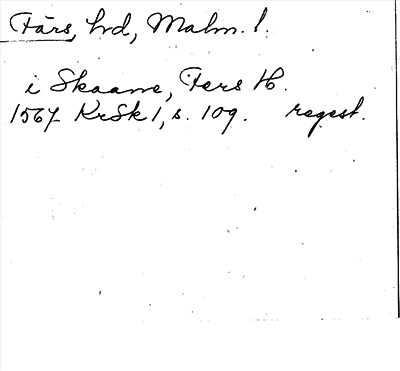 Färs, hd, Malm. l.
i Skaane, Fers H.
1567 KrSk 1, s. 109. regest.